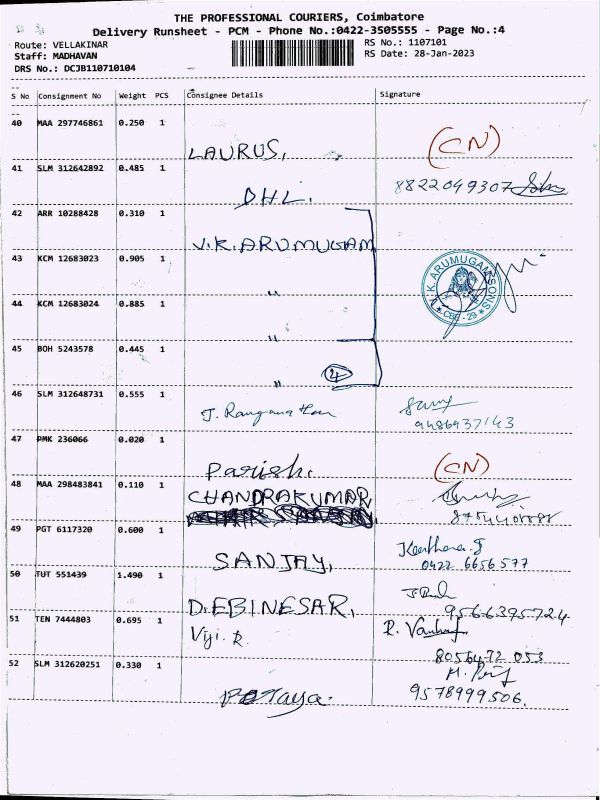 THE PROFESSIONAL COURIERS, Coimbatore
Delivery Runsheet - PCM - Phone No.:0422-3505555 - Page No.:4
Route: VELLAKINAR RS No.: 1107101
Staff: MADHAVAN RS Date: 28-Jan-2023
DRS No.: DCJB110710104
S No Consignment No Weight PCS Consignee Details Signature
40 MAA 297746861 0.250 1
LAURUS, (CN)
41 SLM 312642892 0.485 1
DHL. 8822049307
42 ARR 10288428 0.310 1
V.K.ARUMUGAM
43 KCM 12683023 0.905 1
"
V.K. ARUMUGAM SONS
★ CBE - 29 ★
44 KCM 12683024 0.885 1
"
45 BOH 5243578 0.445 1
" 4
46 SLM 312648731 0.555 1
J. Ranganathan
9486937143
47 PMK 236066 0.020 1
Parish. (CN)
48 MAA 298483841 0.110 1
CHANDRAKUMAR,
49 PGT 6117320 0.600 1
SANJAY, Keerthana.J
0422 6656577
50 TUT 551439 1.490 1
D.EBINESAR, 9566395724
51 TEN 7444803 0.695 1
Viji. R.
8056472 053
52 SLM 312620251 0.330 1
9578999506.